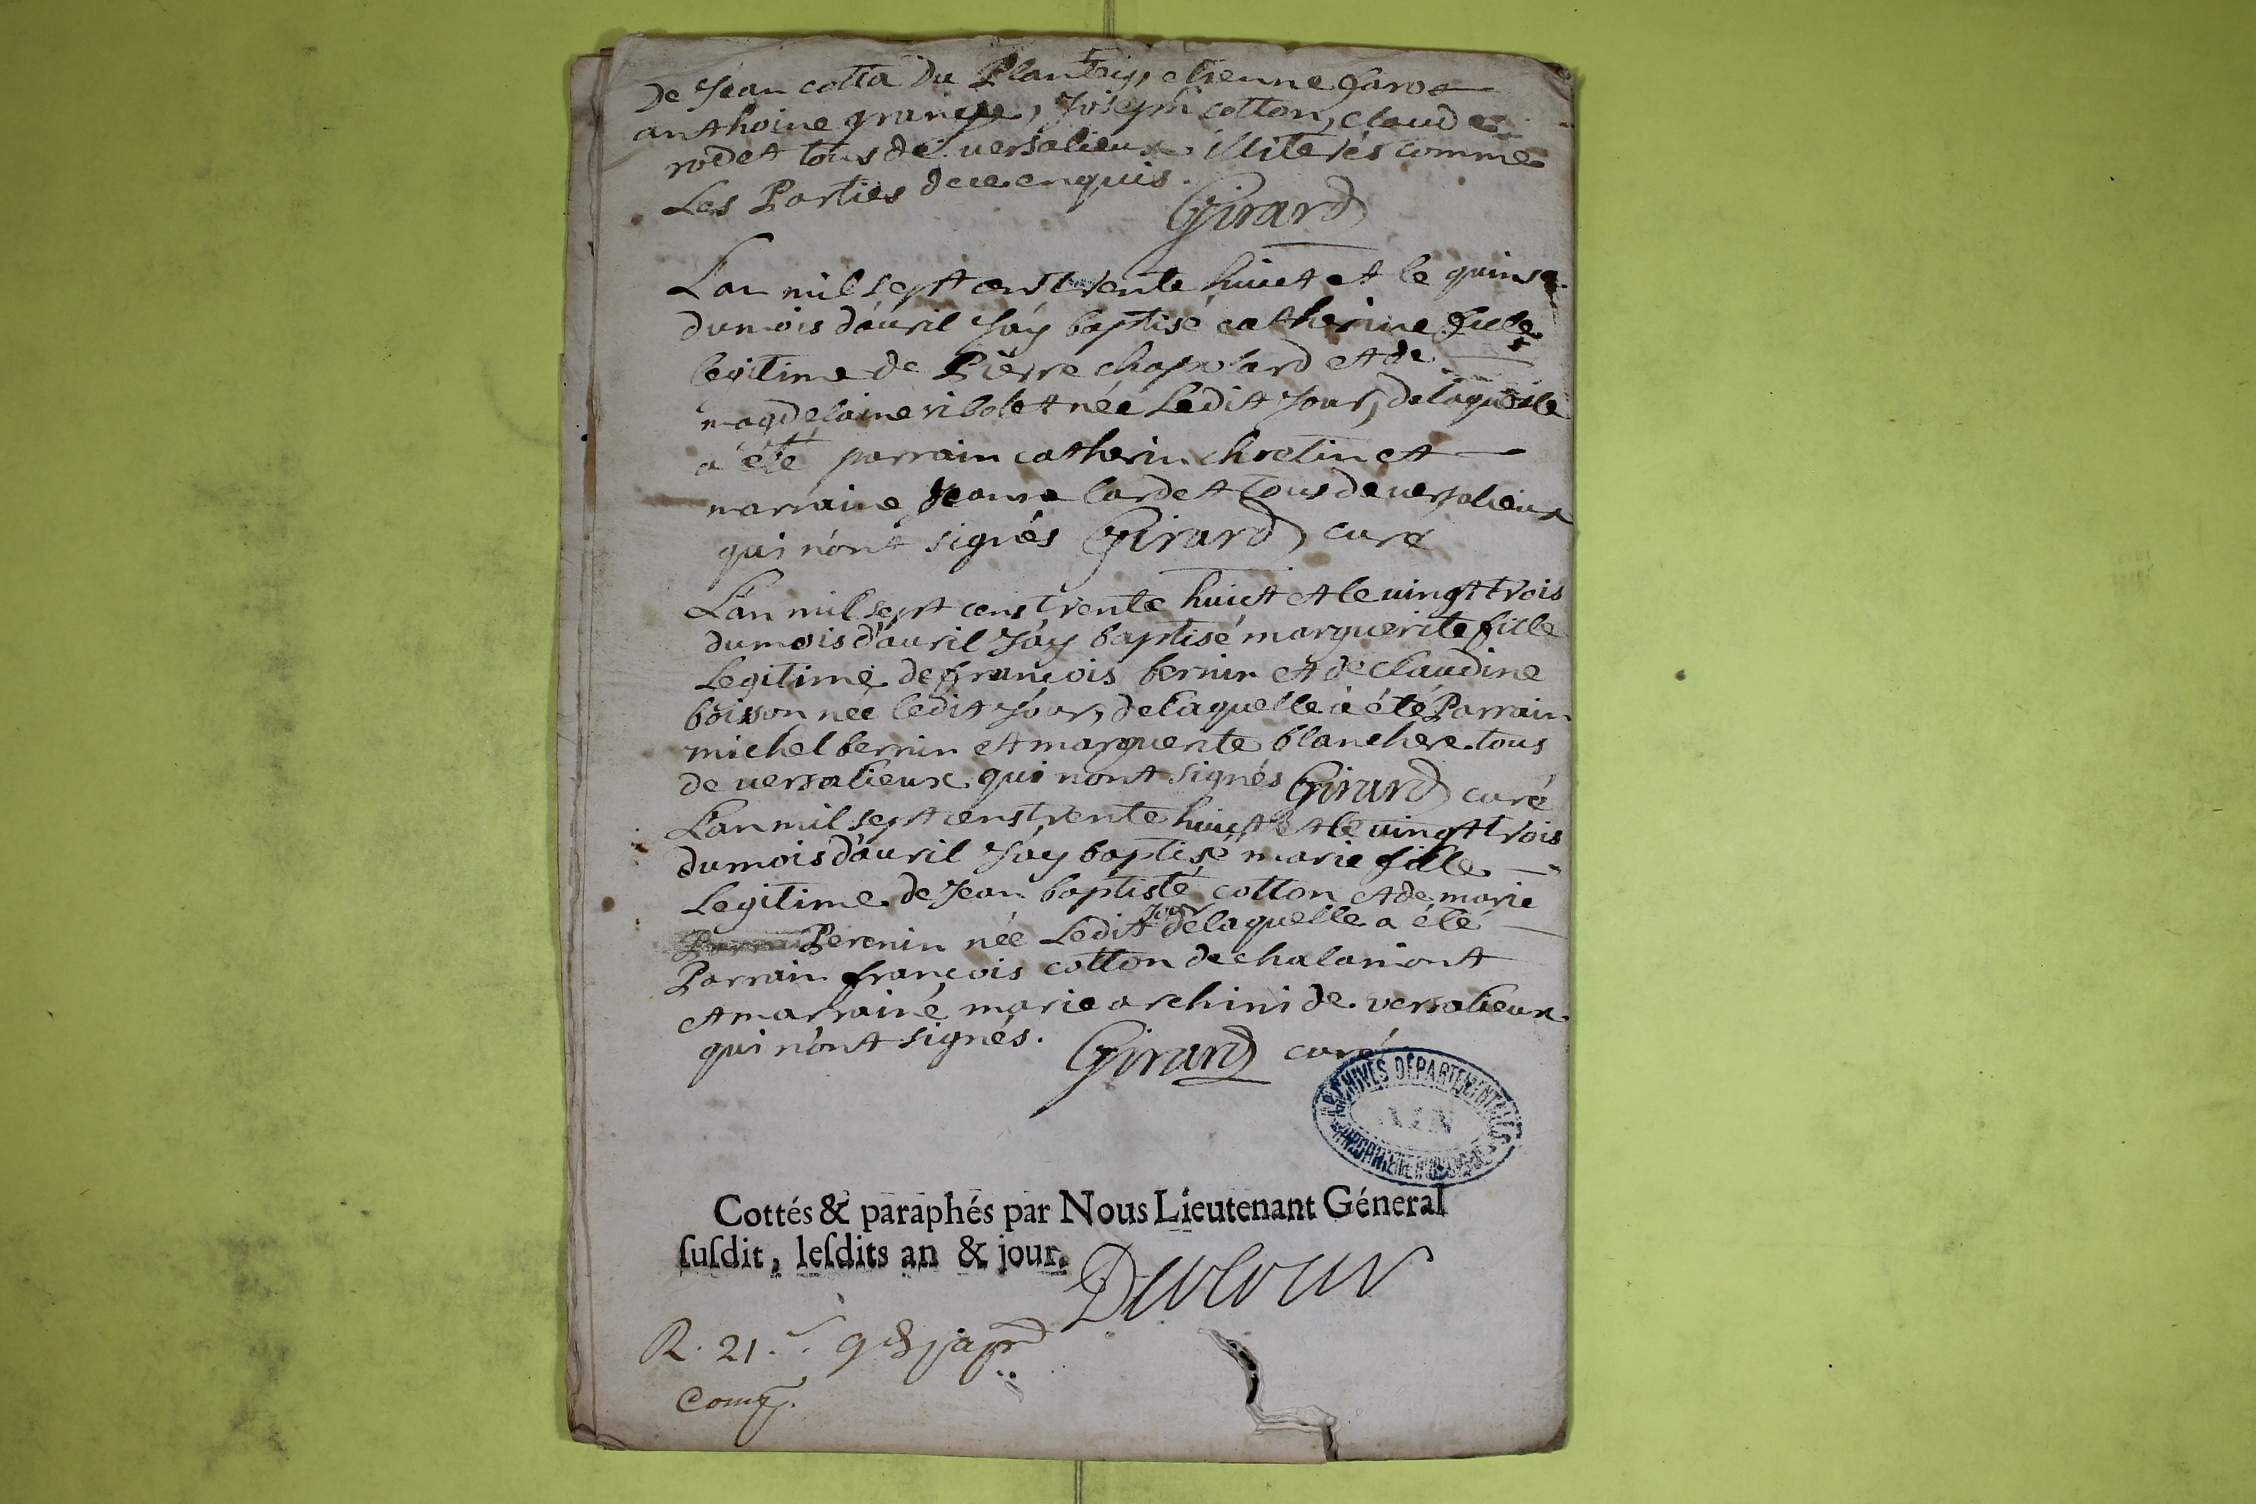 De Jean cotta du Plantey, etienne garot
anthoine grange, Joseph cotton, claude
rodet tous de versalieux illiterés comme
Les Parties de ce enquis.
Girard
L'an mil sept cens trente huict et le quinse
du mois d'auril J'ay baptisé catherine fille
legitime de Pierre chapolard et de
magdelaine ribolet née Ledit Jour, de laquelle
a été parrain catherin chretin et
marraine Jeanne lardet tous de versalieux
qui n'ont signés Girard curé
L'an mil sept cens trente huict et le vingt trois
du mois d'auril J'ay baptisé marguerite fille
Legitime de françois bernin et de claudine
boisson née ledit Jour, de laquelle a été Parrain
michel bernin et marguerite blanchere tous
de versalieux qui n'ont signés Girard curé
L'an mil sept cens trente huict et le vingt trois
du mois d'auril J'ay baptisé marie fille
Legitime de Jean baptiste cotton et de marie
Perenin née Ledit Jour de laquelle a été
Parrain françois cotton de chalamont
et marraine marie archini de versalieux
qui n'ont signés. Girard curé
ARCHIVES DÉPARTEMENTALES
AIN
Cottés & paraphés par Nous Lieutenant Géneral
susdit, lesdits an & jour.
R. 21.